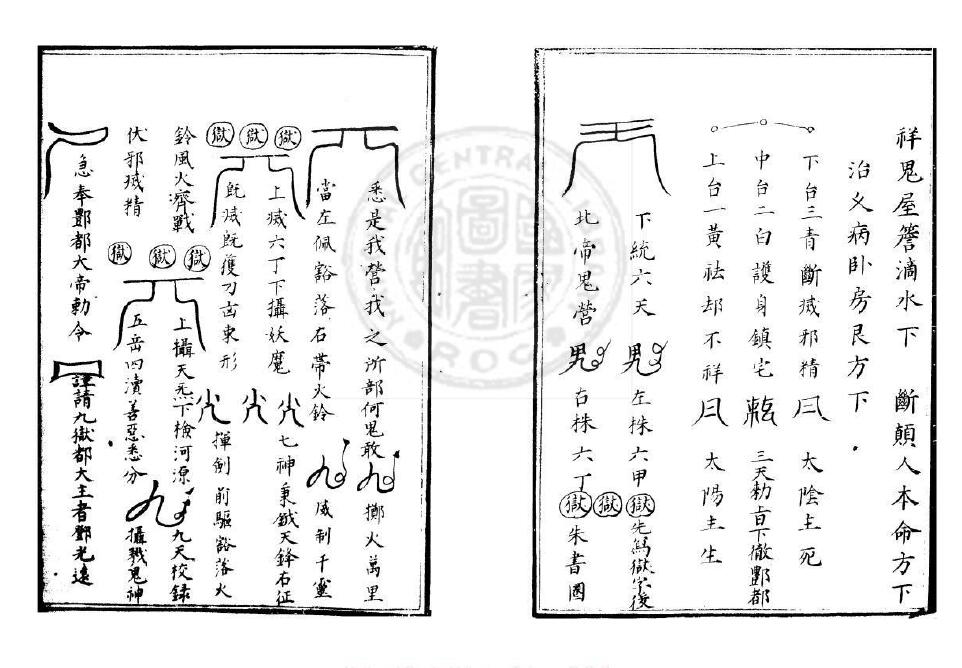 祥鬼屋簷滴水下 斷顛人本命方下
治乂病臥房艮方下
下台三青斷滅邪精 太陰主死
中台二白護身鎮宅 三天勅旨下徹酆都
上台一黃祛却不祥 太陽主生
下統六天 左株六甲 獄 先為獄字後
北帝鬼營 右株六丁 獄 獄 朱書圈
悉是我營我之所部何鬼敢 擲火萬里
當左佩豁落右帶火鈴 威制千靈
獄 獄 獄
上滅六丁下攝妖魔 七神秉鉞天鋒右征
旣滅旣獲刀凿東形 揮劍前驅豁落火
鈴風火齊戰
獄 獄 獄
上攝天炁下檢河源 九天校錄
伏邪滅精
五岳四瀆善惡悉分 攝戮鬼神
急奉酆都大帝勅令 謹請九獄都大主者鄧光遠
CENTRAL
ROC
圖